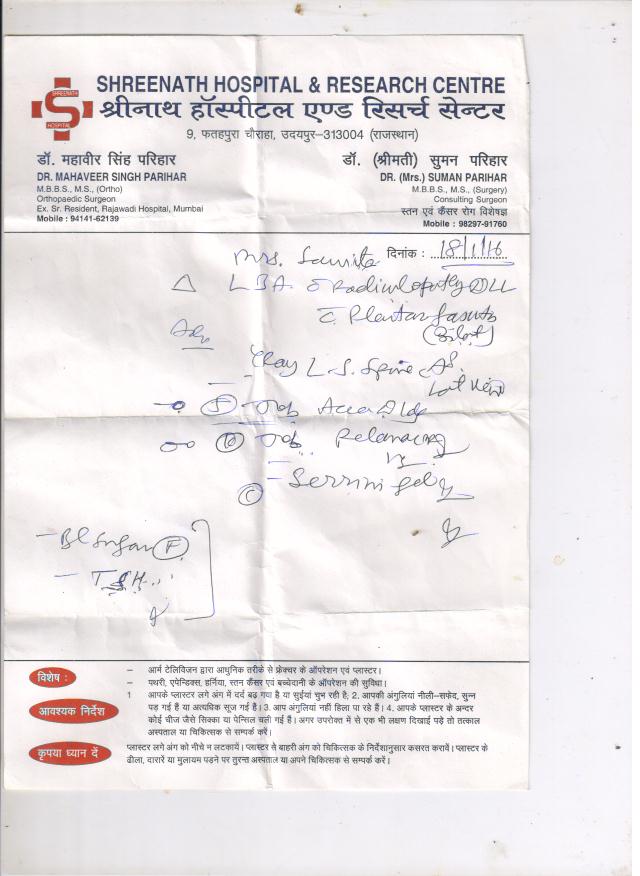 SHREENATH
S
HOSPITAL
SHREENATH HOSPITAL & RESEARCH CENTRE
श्रीनाथ हॉस्पीटल एण्ड रिसर्च सेन्टर
9, फतहपुरा चौराहा, उदयपुर–313004 (राजस्थान)
डॉ. महावीर सिंह परिहार
DR. MAHAVEER SINGH PARIHAR
M.B.B.S., M.S., (Ortho)
Orthopaedic Surgeon
Ex. Sr. Resident, Rajawadi Hospital, Mumbai
Mobile : 94141-62139
डॉ. (श्रीमती) सुमन परिहार
DR. (Mrs.) SUMAN PARIHAR
M.B.B.S., M.S., (Surgery)
Consulting Surgeon
स्तन एवं कैंसर रोग विशेषज्ञ
Mobile : 98297-91760
Mrs. दिनांक : 18/1/16
△ LBA Radiculopathy LL
Plantar
Adv
Xray L.S. Spine
Lat View
gel
Bl Sugar F
TSH
विशेष :
– आर्म टेलिविजन द्वारा आधुनिक तरीके से फ्रेक्चर के ऑपरेशन एवं प्लास्टर।
– पथरी, एपेन्डिक्स, हर्निया, स्तन कैंसर एवं बच्चेदानी के ऑपरेशन की सुविधा।
आवश्यक निर्देश
1 आपके प्लास्टर लगे अंग में दर्द बढ़ गया है या सुईयां चुभ रही है; 2. आपकी अंगुलियां नीली–सफेद, सुन्न
पड़ गई हैं या अत्यधिक सूज गई हैं। 3. आप अंगुलियां नहीं हिला पा रहे हैं। 4. आपके प्लास्टर के अन्दर
कोई चीज जैसे सिक्का या पेन्सिल चली गई हैं। अगर उपरोक्त में से एक भी लक्षण दिखाई पड़े तो तत्काल
अस्पताल या चिकित्सक से सम्पर्क करें।
कृपया ध्यान दें
प्लास्टर लगे अंग को नीचे न लटकायें। प्लास्टर से बाहरी अंग को चिकित्सक के निर्देशानुसार कसरत करावें। प्लास्टर के
ढीला, दारारें या मुलायम पड़ने पर तुरन्त अस्पताल या अपने चिकित्सक से सम्पर्क करें।